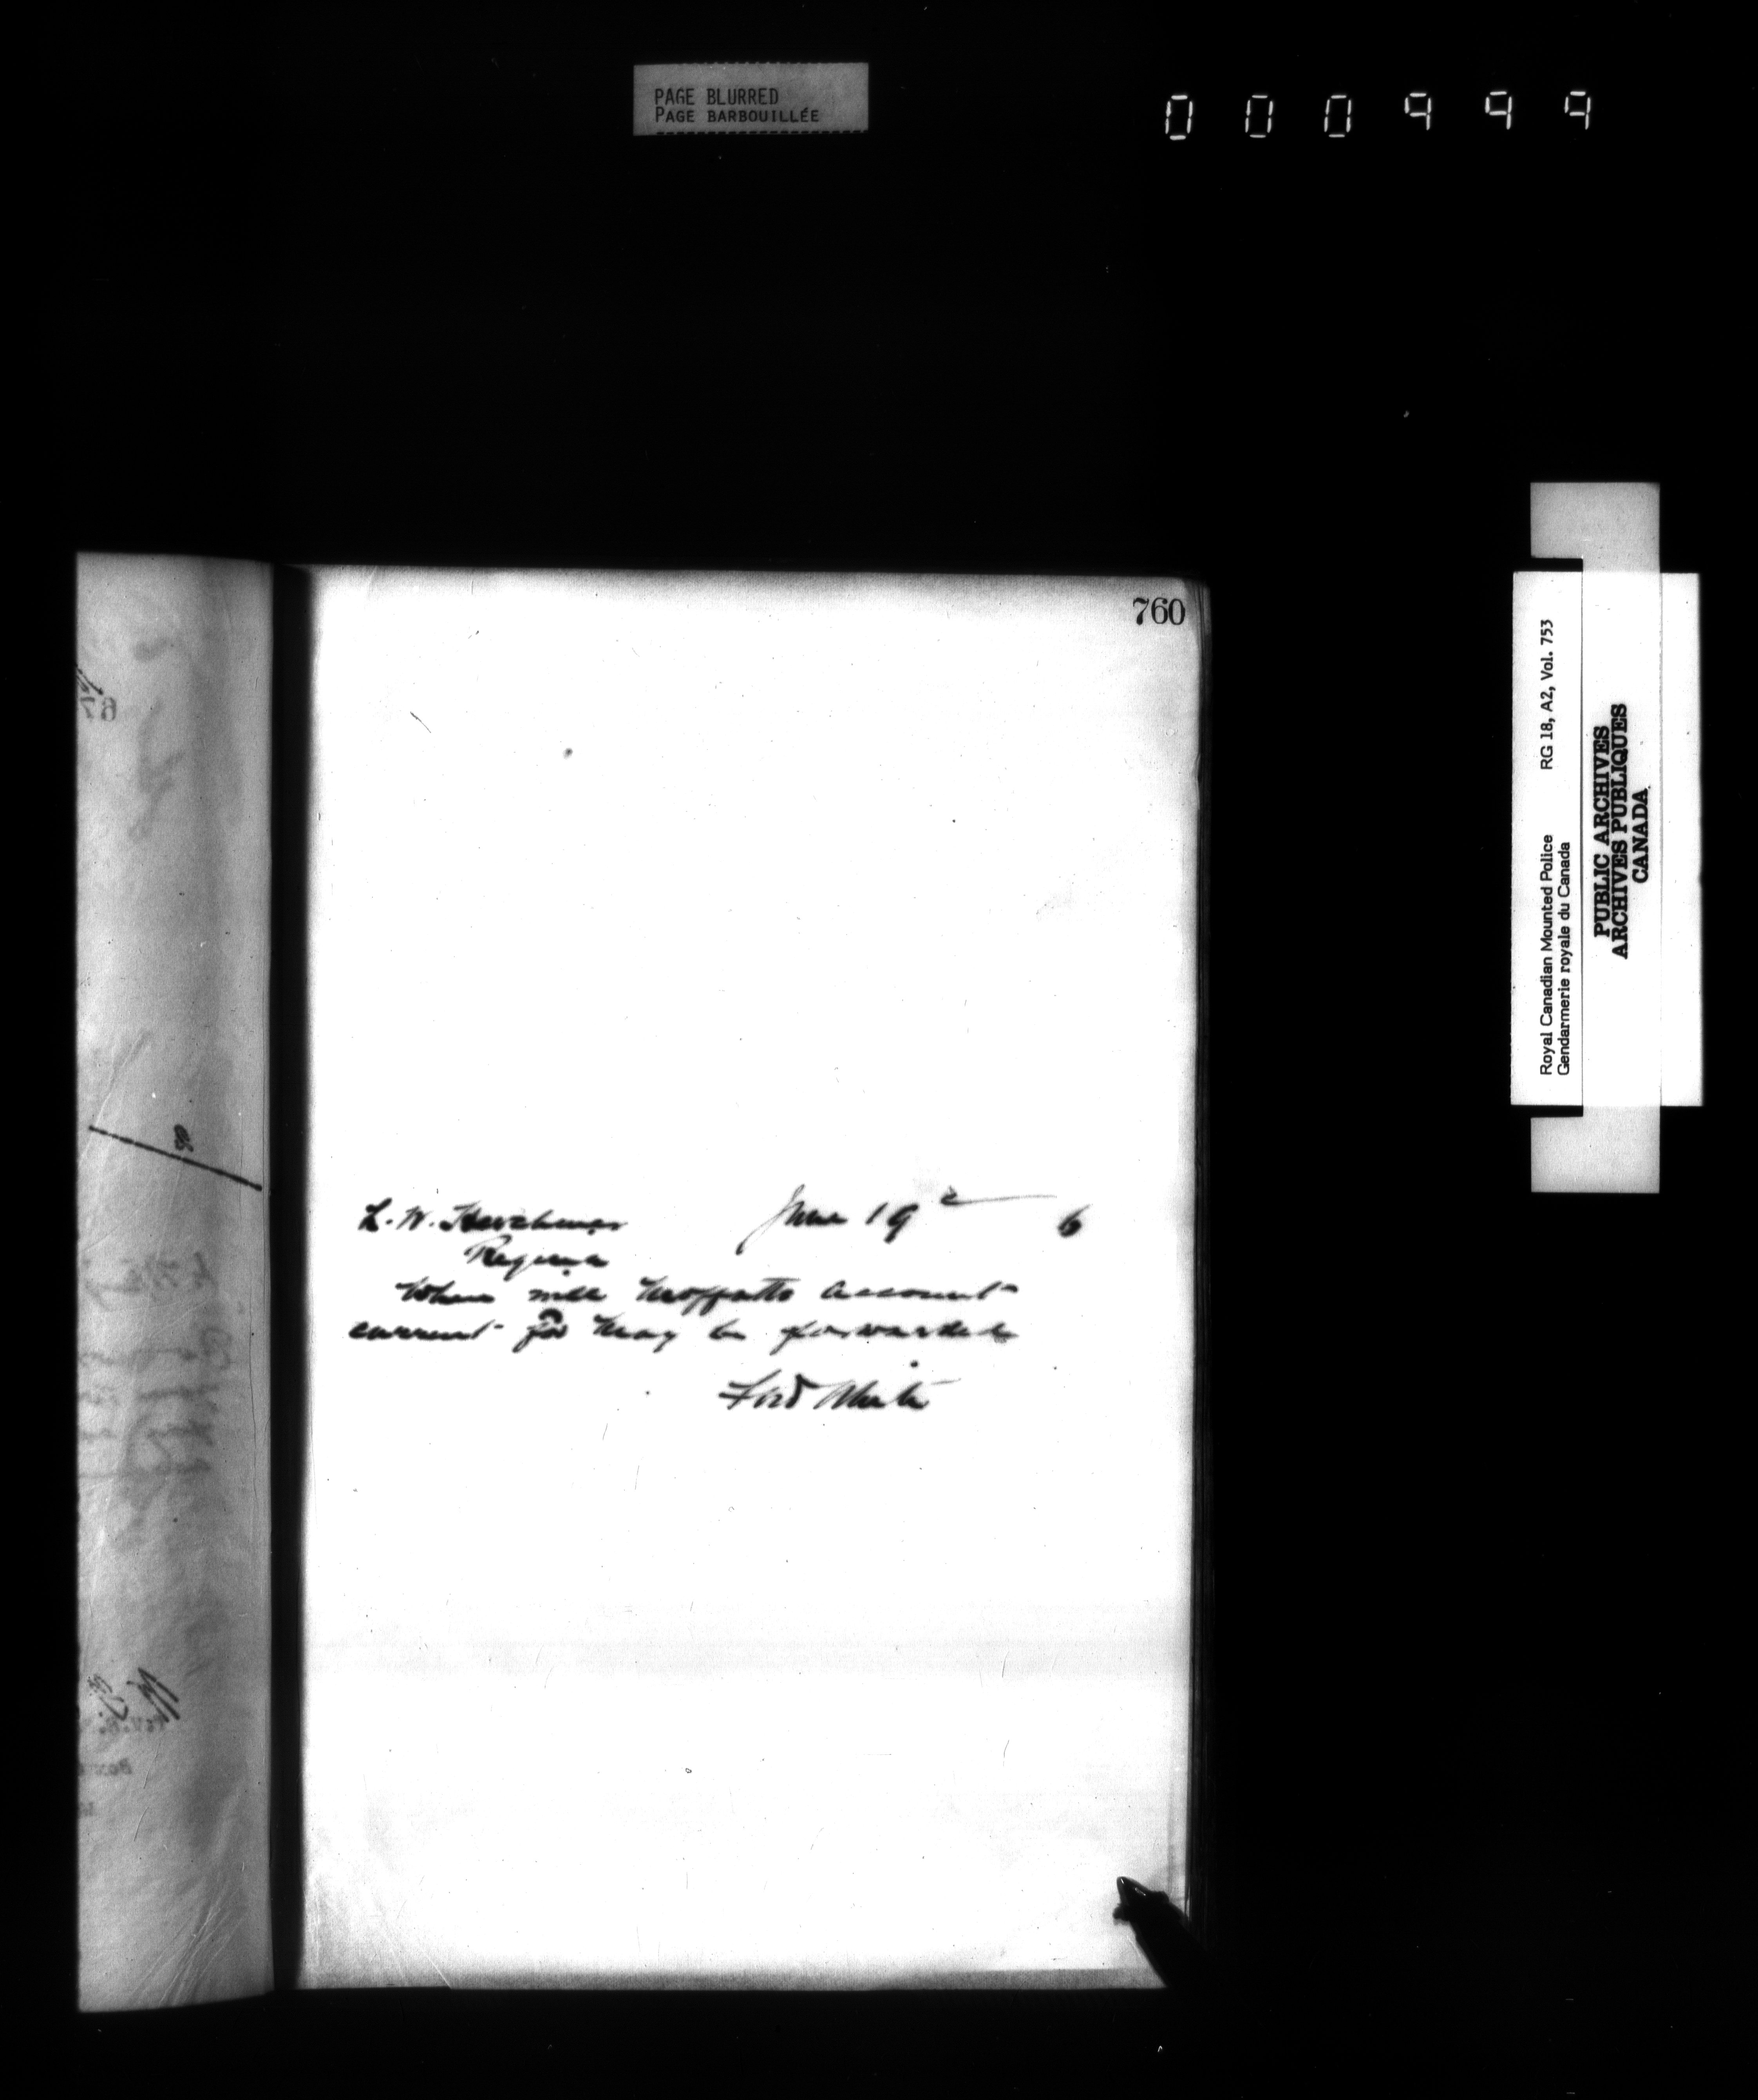 PAGE BLURRED
PAGE BARBOUILLÉE
000999
760
L. W. Herchmer June 19 6
Regina
When will Moffatts account
current for May be forwarded
Fred White
Royal Canadian Mounted Police RG 18, A2, Vol. 753
Gendarmerie royale du Canada
PUBLIC ARCHIVES
ARCHIVES PUBLIQUES
CANADA